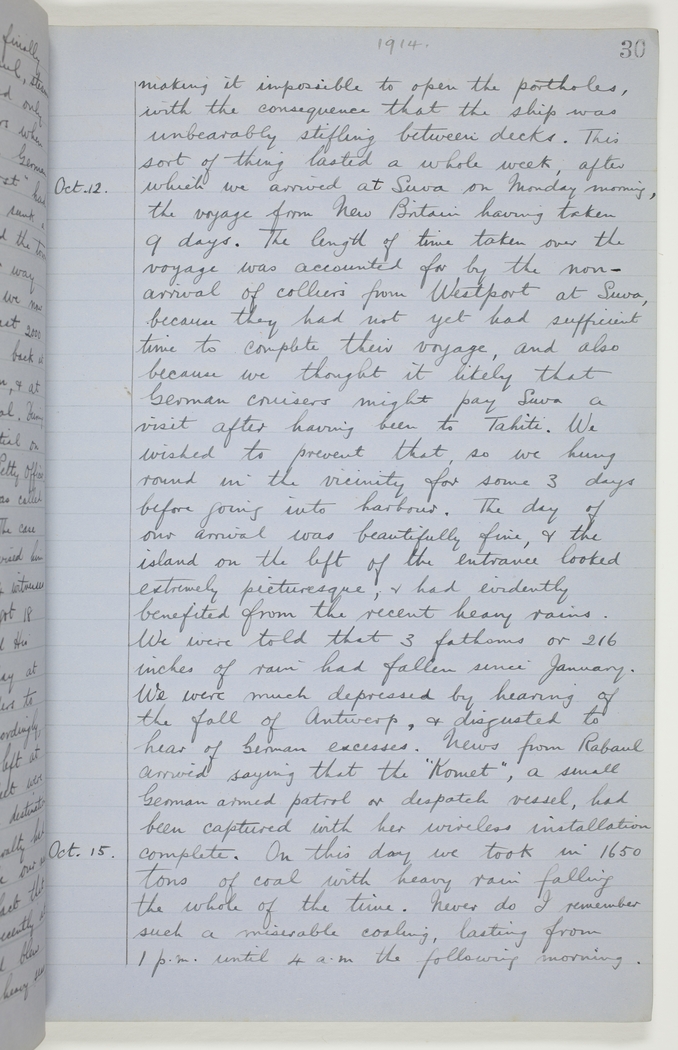 1914.
30
making it impossible to open the portholes,
with the consequence that the ship was
unbearably stifling between decks. This
sort of thing lasted a whole week, after
Oct. 12. which we arrived at Suva on Monday morning,
the voyage from New Britain having taken
9 days. The length of time taken over the
voyage was accounted for by the non-
arrival of colliers from Westport at Suva,
because they had not yet had sufficient
time to complete their voyage, and also
because we thought it likely that
German cruisers might pay Suva a
visit after having been to Tahiti. We
wished to prevent that, so we hung
round in the vicinity for some 3 days
before going into harbour. The day of
our arrival was beautifully fine, & the
island on the left of the entrance looked
extremely picturesque, & had evidently
benefited from the recent heavy rains.
We were told that 3 fathoms or 216
inches of rain had fallen since January.
We were much depressed by hearing of
the fall of Antwerp, & disgusted to
hear of German excesses. News from Rabaul
arrived saying that the "Komet", a small
German armed patrol or despatch vessel, had
been captured with her wireless installation
Oct. 15. complete. On this day we took in 1650
tons of coal with heavy rain falling
the whole of the time. Never do I remember
such a miserable coaling, lasting from
1 p.m. until 4 a.m the following morning.